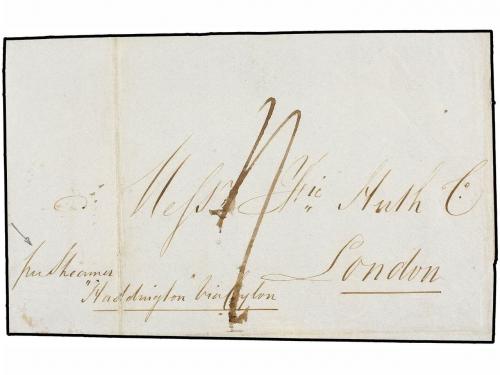 Messrs Fric Huth Co
London
per Steamer
"Haddington" via Ceylon